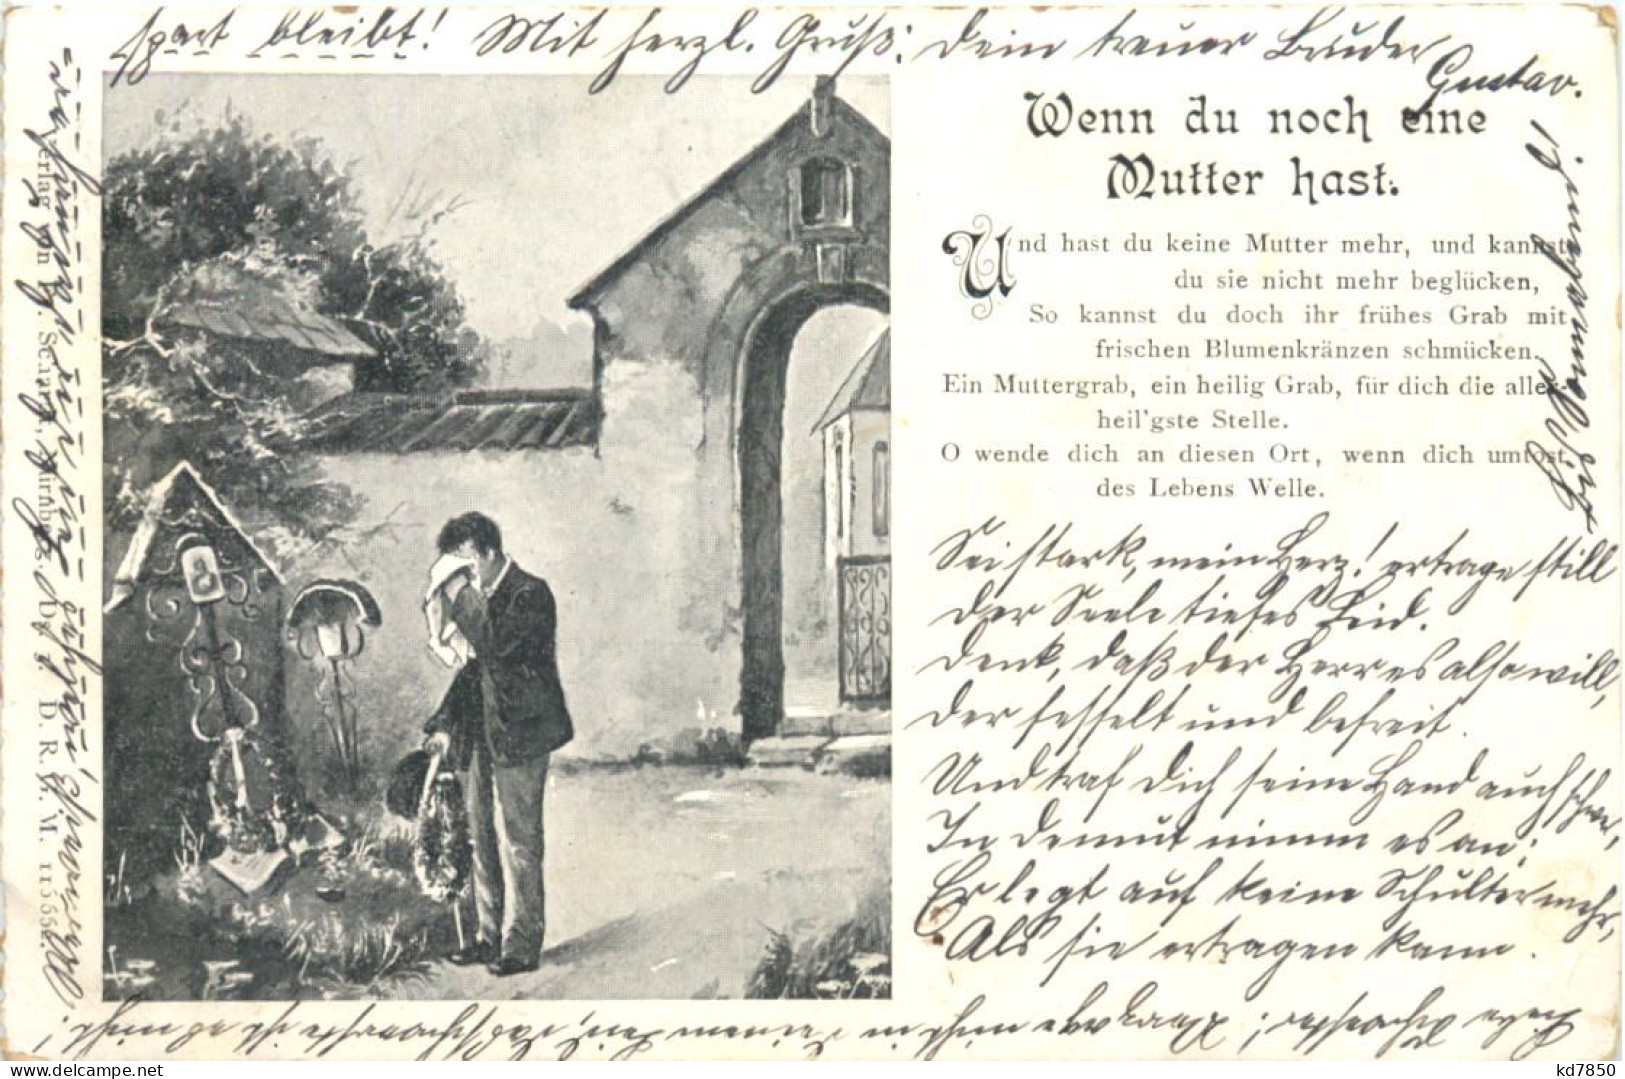 Wenn du noch eine
Mutter hast.
Und hast du keine Mutter mehr, und kannst
du sie nicht mehr beglücken,
So kannst du doch ihr frühes Grab mit
frischen Blumenkränzen schmücken.
Ein Muttergrab, ein heilig Grab, für dich die aller-
heil'gste Stelle.
O wende dich an diesen Ort, wenn dich umtost
des Lebens Welle.
Sei stark, mein Herz! ertrage still
Der Seele tiefes Leid.
Denk, daß der Herr es also will,
Der fesselt und befreit.
Und traf Dich seine Hand auch schwer,
In Demut nimm es an;
Er legt auf keine Schulter mehr,
Als sie ertragen kann.
Liebe Schwester; verzage nicht in Deinem Leid, das schwerste ist es nicht;
spart bleibt! Mit herzl. Gruß: Dein treuer Bruder
Gustav.
Verlag von Scharf, Nürnberg. D. R. G. M.
kd7850